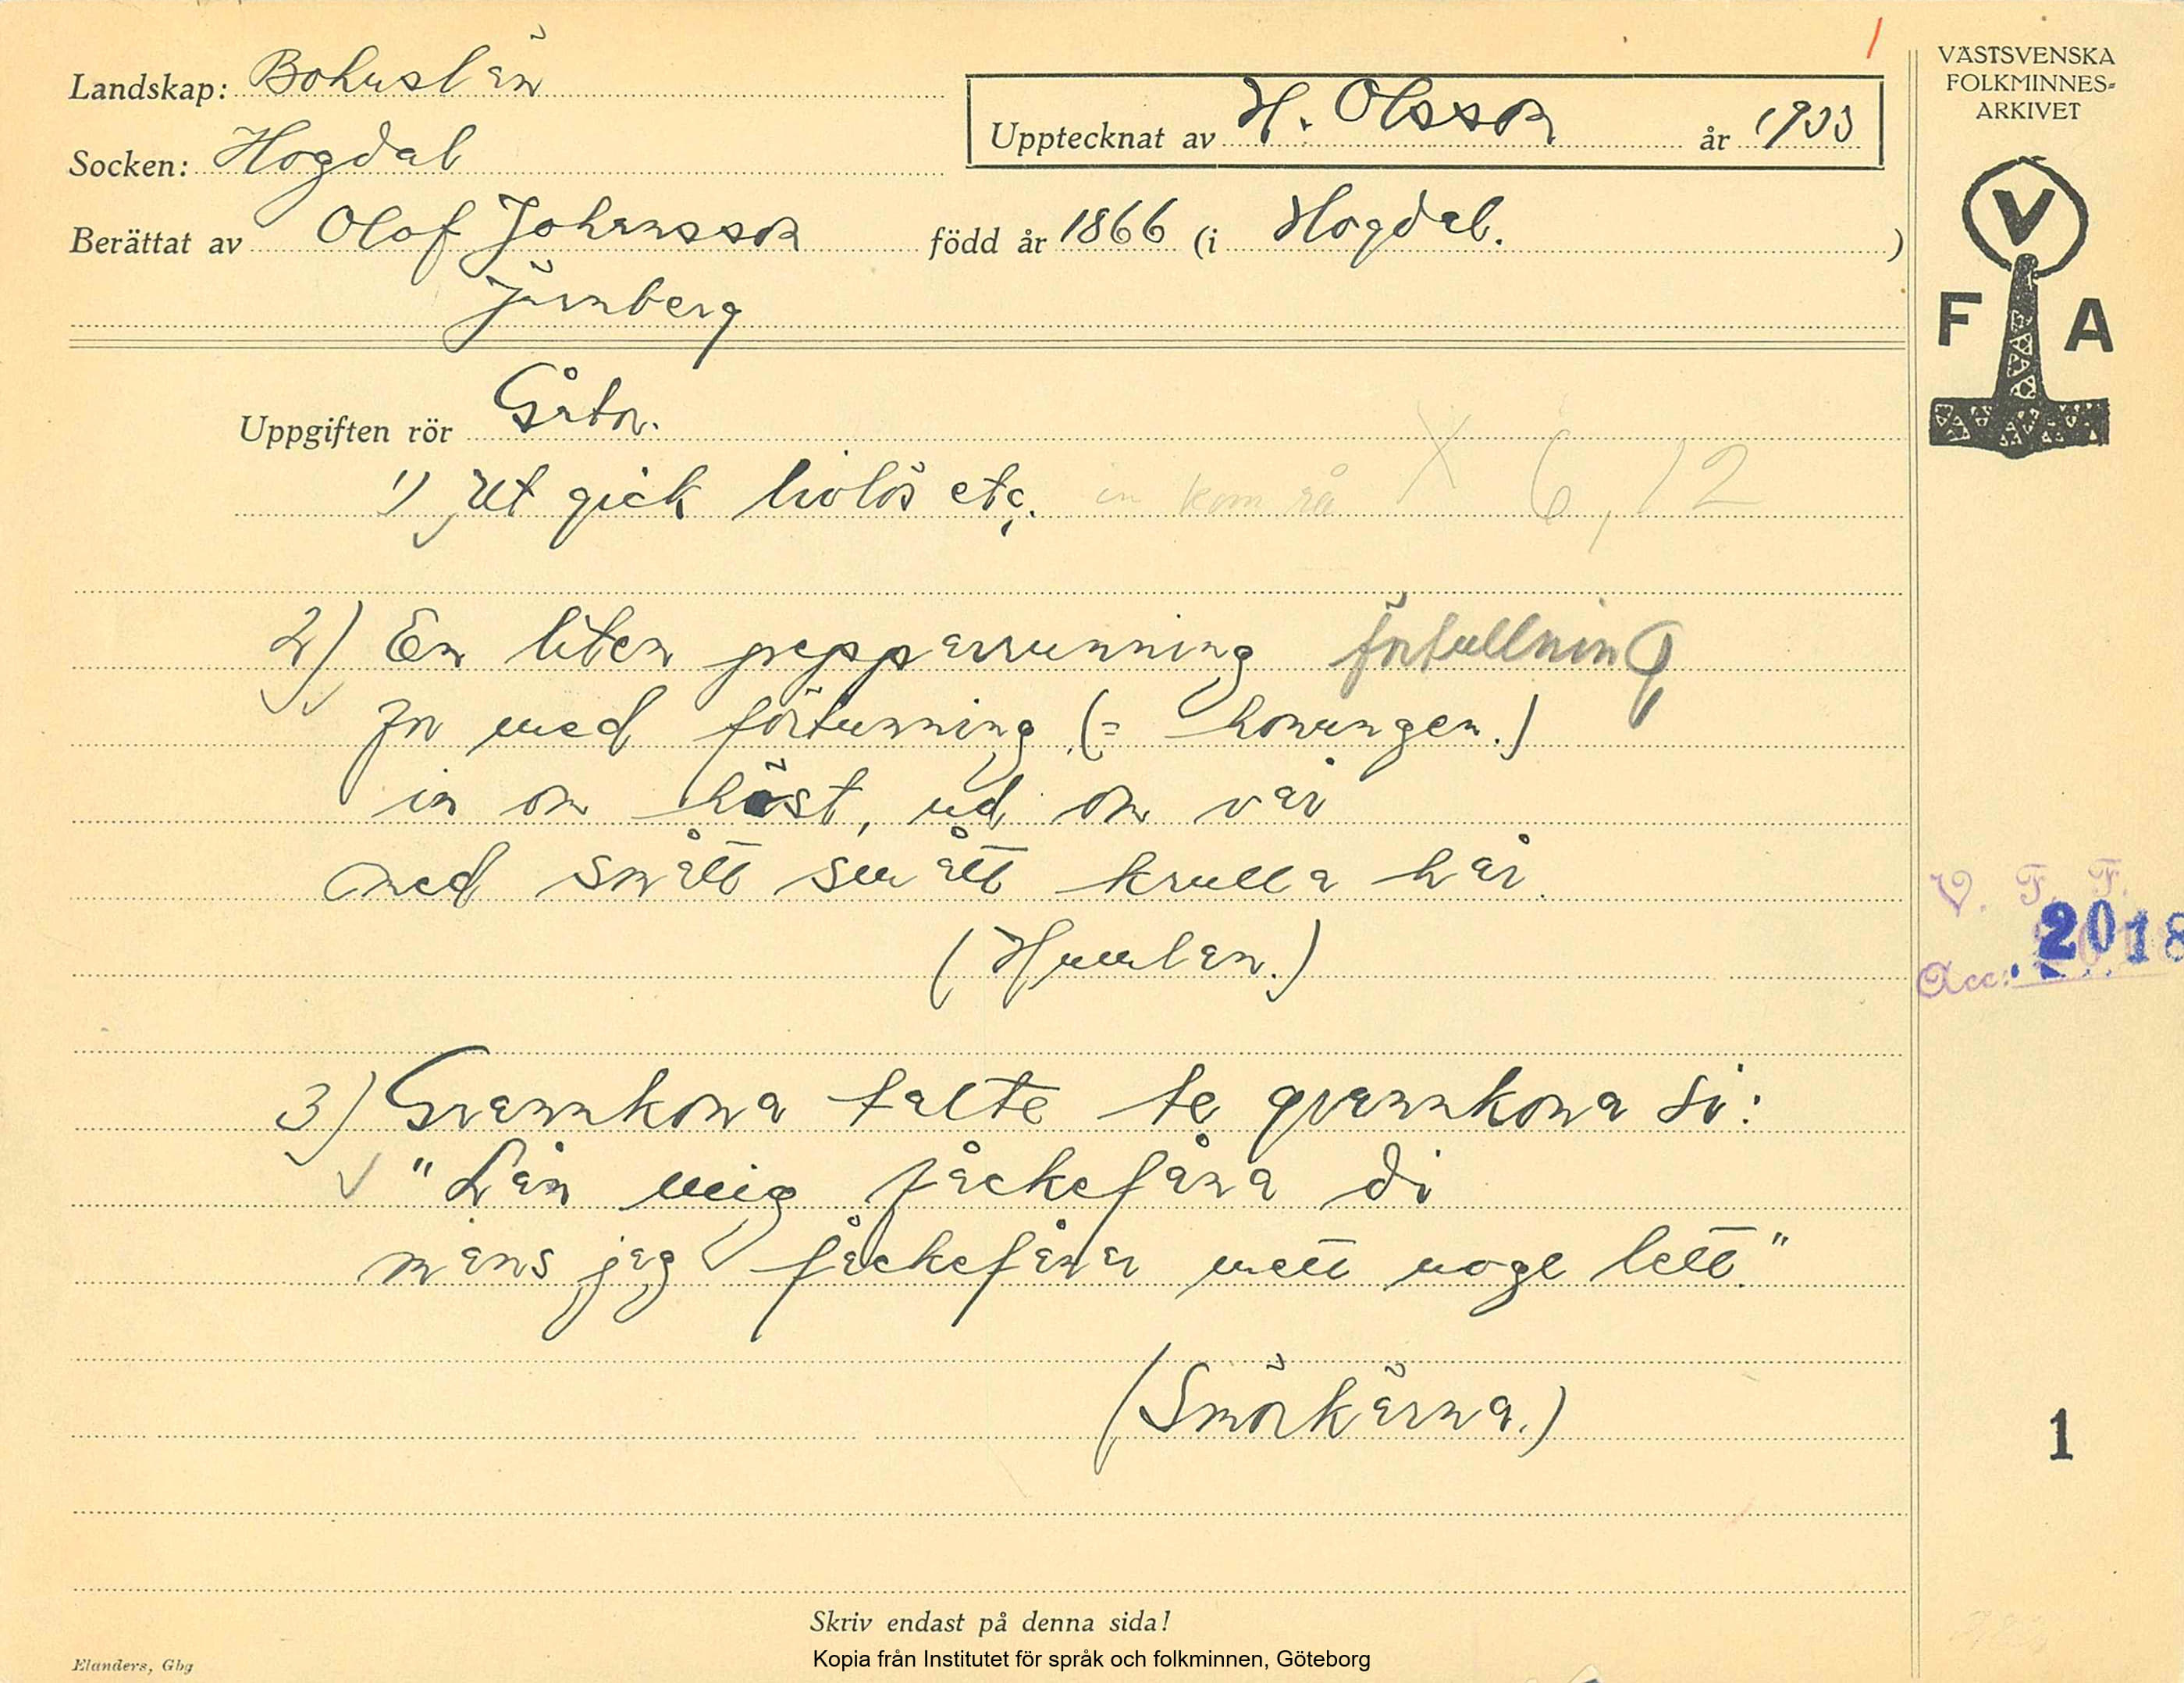 Landskap: Bohuslän
Socken: Hogdal
Berättat av Olof Johansson
Järnberg
Upptecknat av H. Olsson år 1933
född år 1866 (i Hogdal.)
Uppgiften rör Gåtor.
1) Ut gick livlös etc. in kom rå X 6,12
2) En liten pepparrunning förtullning
Jo med förtunning (= honungen.)
in om höst, ud om vår
med smått smått krulla hår.
(Humlan.)
3) Grannkona talte te grannkona si:
"Lån mig fåckefåna di
mens jag fåckefånar mett noge lett."
(Smörkärna.)
VÄSTSVENSKA
FOLKMINNES-
ARKIVET
V
F A
V. F. F.
Acc: 2018
1
Skriv endast på denna sida!
Kopia från Institutet för språk och folkminnen, Göteborg
Elanders, Gbg